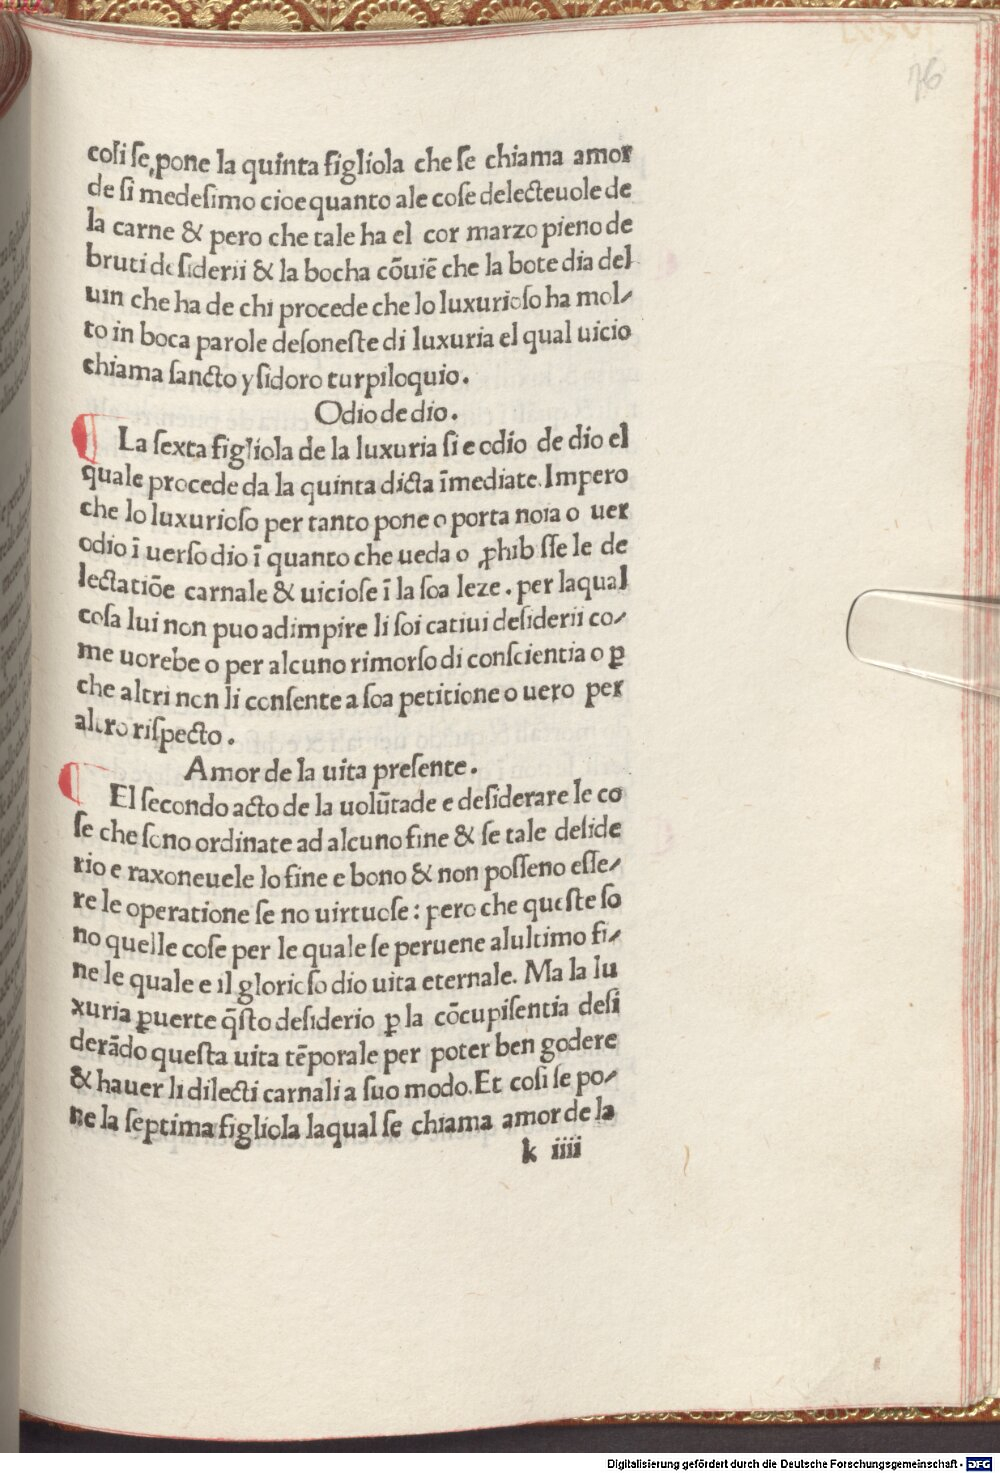 76
coſi ſe ꝓpone la quinta figliola che ſe chiama amor
de ſi medeſimo cioe quanto ale coſe delecteuole de
la carne & pero che tale ha el cor marzo pieno de
bruti deſiderii & la bocha cõuiẽ che la bote dia del
uin che ha de chi procede che lo luxurioſo ha mol⸗
to in boca parole deſoneſte di luxuria el qual uicio
chiama ſancto yſidoro turpiloquio.
Odio de dio.
La ſexta figliola de la luxuria ſi e odio de dio el
quale procede da la quinta dicta ĩmediate. Impero
che lo luxurioſo per tanto pone o porta noia o uer
odio ĩ uerſo dio ĩ quanto che ueda o ꝓhib ſſe le de
lectatiõe carnale & uicioſe ĩ la ſoa leze. per laqual
coſa lui non puo adimpire li ſoi catiui deſiderii co⸗
me uorebe o per alcuno rimorſo di conſcientia o ꝑ
che altri non li conſente a ſoa petitione o uero per
altro riſpecto.
Amor de la uita preſente.
El ſecondo acto de la uolũtade e deſiderare le co
ſe che ſono ordinate ad alcuno fine & ſe tale deſide
rio e raxoneuele lo fine e bono & non poſſeno eſſe⸗
re le operatione ſe no uirtuoſe: pero che queſte ſo
no quelle coſe per le quale ſe peruene alultimo fi⸗
ne le quale e il glorioſo dio uita eternale. Ma la lu
xuria ꝑuerte q̃ſto deſiderio ꝑ la cõcupiſentia deſi
derãdo queſta uita tẽporale per poter ben godere
& hauer li dilecti carnali a ſuo modo. Et coſi ſe po⸗
ne la ſeptima figliola laqual ſe chiama amor de la
k iiii
Digitalisierung gefördert durch die Deutsche Forschungsgemeinschaft - DFG